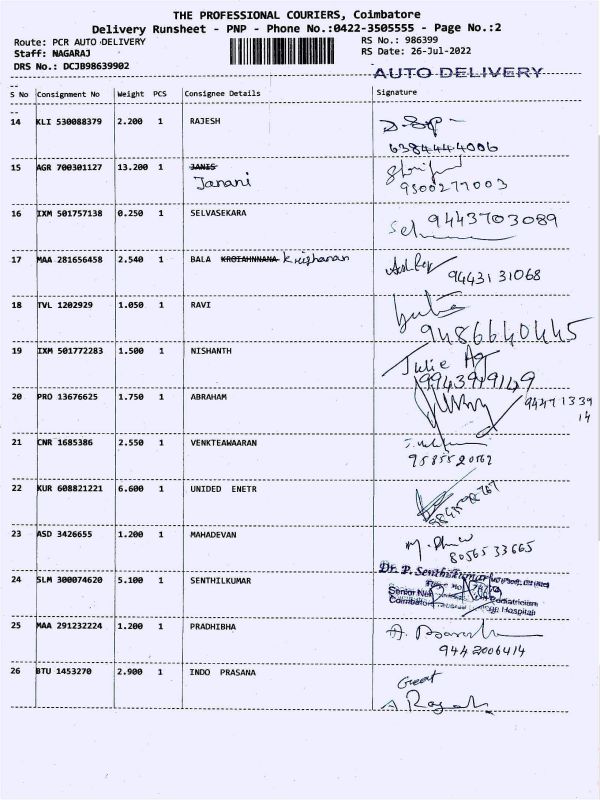 THE PROFESSIONAL COURIERS, Coimbatore
Delivery Runsheet - PNP - Phone No.:0422-3505555 - Page No.:2
Route: PCR AUTO DELIVERY
RS No.: 986399
Staff: NAGARAJ
RS Date: 26-Jul-2022
DRS No.: DCJB98639902
AUTO DELIVERY
S No Consignment No Weight PCS Consignee Details Signature
14 KLI 530088379 2.200 1 RAJESH
6384444006
15 AGR 700301127 13.200 1 JANIS
Janani
9500277003
16 IXM 501757138 0.250 1 SELVASEKARA
Sel 9443703089
17 MAA 281656458 2.540 1 BALA KROIAHNNANA Krishanan
94431 31068
18 TVL 1202929 1.050 1 RAVI
9486640445
19 IXM 501772283 1.500 1 NISHANTH
Julie
9943919149
20 PRO 13676625 1.750 1 ABRAHAM
94471339
14
21 CNR 1685386 2.550 1 VENKTEAWAARAN
22 KUR 608821221 6.600 1 UNIDED ENETR
23 ASD 3426655 1.200 1 MAHADEVAN
80565 33665
24 SLM 300074620 5.100 1 SENTHILKUMAR
Dr. P. Senthilkumar
25 MAA 291232224 1.200 1 PRADHIBHA
9442006414
26 BTU 1453270 2.900 1 INDO PRASANA
Great